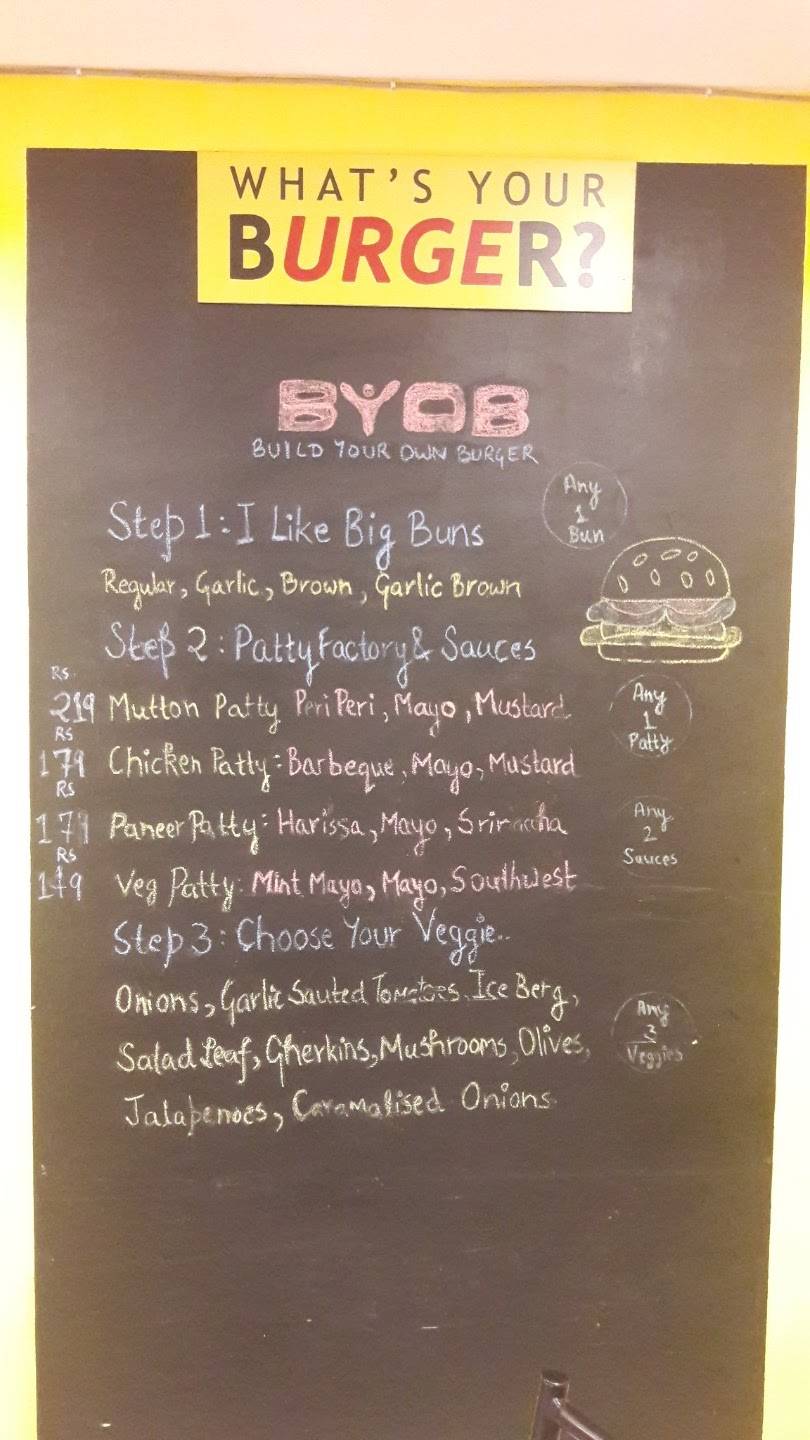 WHAT'S YOUR
BURGER?
BYOB
BUILD YOUR OWN BURGER
Any
1
Bun
Step 1: I Like Big Buns
Regular, Garlic, Brown, Garlic Brown
Step 2: Patty Factory & Sauces
RS.
219 Mutton Patty Peri Peri, Mayo, Mustard
Any
1
Patty
RS
179 Chicken Patty: Barbeque, Mayo, Mustard
RS
179 Paneer Patty: Harissa, Mayo, Sriracha
Any
2
Sauces
RS
149 Veg Patty: Mint Mayo, Mayo, Southwest
Step 3: Choose Your Veggie..
Onions, Garlic Sauted Tomatoes, Ice Berg,
Salad Leaf, Gherkins, Mushrooms, Olives,
Any
3
Veggies
Jalapenoes, Caramalised Onions